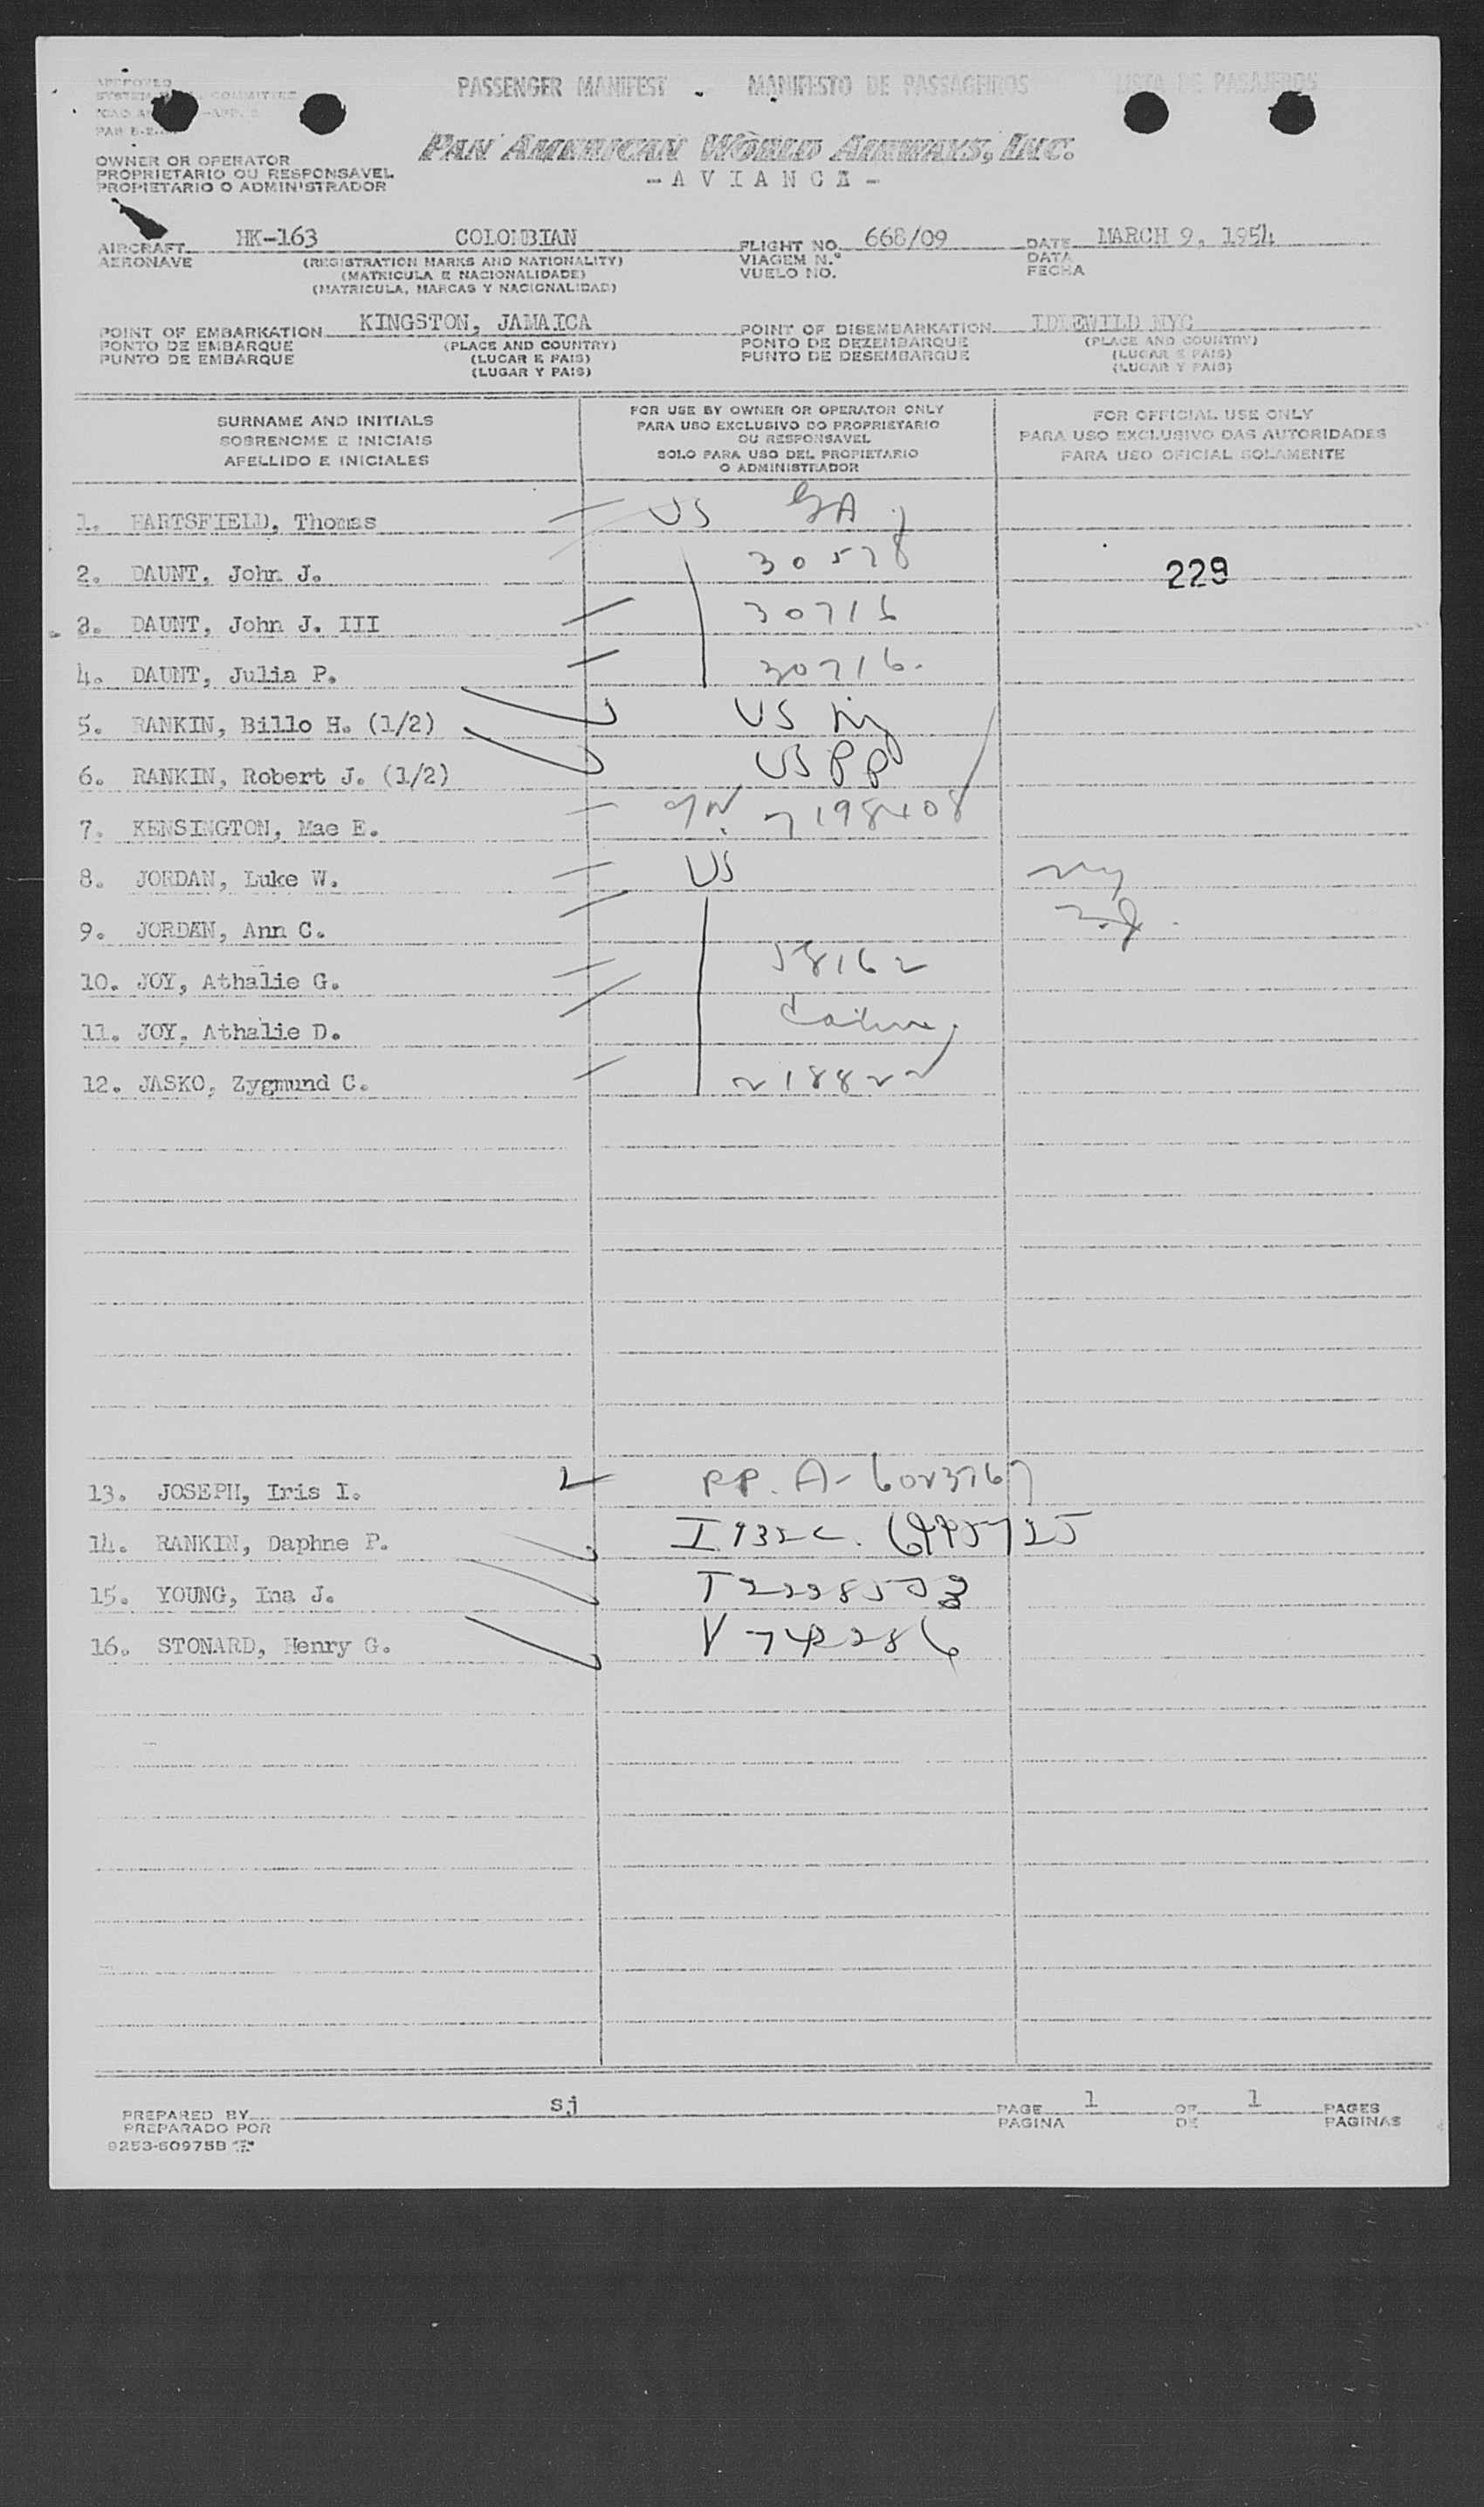 APPROVED
PASSENGER MANIFEST - MANIFESTO DE PASSAGEIROS LISTA DE PASAJEROS
COMMITTEE
PAN AMERICAN WORLD AIRWAYS, INC.
OWNER OR OPERATOR
PROPRIETARIO OU RESPONSAVEL
PROPIETARIO O ADMINISTRADOR
-AVIANCA-
AIRCRAFT HK-163 COLOMBIAN FLIGHT NO. 668/09 DATE MARCH 9, 1954
AERONAVE (REGISTRATION MARKS AND NATIONALITY) VIAGEM N.º DATA
(MATRICULA E NACIONALIDADE) VUELO NO. FECHA
(MATRICULA, MARCAS Y NACIONALIDAD)
POINT OF EMBARKATION KINGSTON, JAMAICA POINT OF DISEMBARKATION IDLEWILD NYC
PONTO DE EMBARQUE (PLACE AND COUNTRY) PONTO DE DEZEMBARQUE (PLACE AND COUNTRY)
PUNTO DE EMBARQUE (LUGAR E PAIS) PUNTO DE DESEMBARQUE (LUGAR E PAIS)
(LUGAR Y PAIS) (LUGAR Y PAIS)
SURNAME AND INITIALS
SOBRENOME E INICIAIS
APELLIDO E INICIALES
FOR USE BY OWNER OR OPERATOR ONLY
PARA USO EXCLUSIVO DO PROPRIETARIO
OU RESPONSAVEL
SOLO PARA USO DEL PROPIETARIO
O ADMINISTRADOR
FOR OFFICIAL USE ONLY
PARA USO EXCLUSIVO DAS AUTORIDADES
PARA USO OFICIAL SOLAMENTE
1. HARTSFIELD, Thomas US GA
2. DAUNT, John J. 30578 229
3. DAUNT, John J. III 30716
4. DAUNT, Julia P. 30716.
5. RANKIN, Billo H. (1/2) US
6. RANKIN, Robert J. (1/2) US PP
7. KENSINGTON, Mae E. 7198408
8. JORDAN, Luke W. US
9. JORDAN, Ann C.
10. JOY, Athalie G. 58162
11. JOY, Athalie D.
12. JASKO, Zygmund C. 218822
13. JOSEPH, Iris I. PP. A-6023767
14. RANKIN, Daphne P.
15. YOUNG, Ina J.
16. STONARD, Henry G. V 742286
PREPARED BY sj PAGE 1 OF 1 PAGES
PREPARADO POR PAGINA DE PAGINAS
9253-60975B